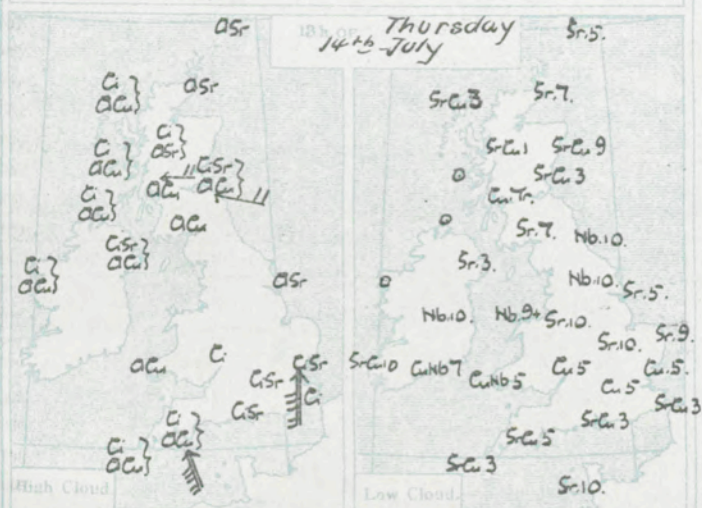 Thursday
14th July
ASr
Ci
ACu
ASr
Ci
ASr
Ci
ACu
CiSr
ACu
ACu
Ci
ACu
ACu
CiSr
ACu
Ci
ACu
ASr
ACu
Ci
CiSr
CiSr
Ci
CiSr
Ci
ACu
Ci
ACu
High Cloud.
Sr.5.
SrCu3
Sr.7.
SrCu1
SrCu9
SrCu3
Cu.Tr.
Sr.7.
Nb.10.
Sr.3.
Nb.10.
Sr.5.
Nb.10.
Nb.9+
Sr.10.
Sr.9.
Sr.10.
SrCu10
CuNb7
CuNb5
Cu5
Cu.5.
Cu5
SrCu3
SrCu3
SrCu5
SrCu3
Sr.10.
Low Cloud.